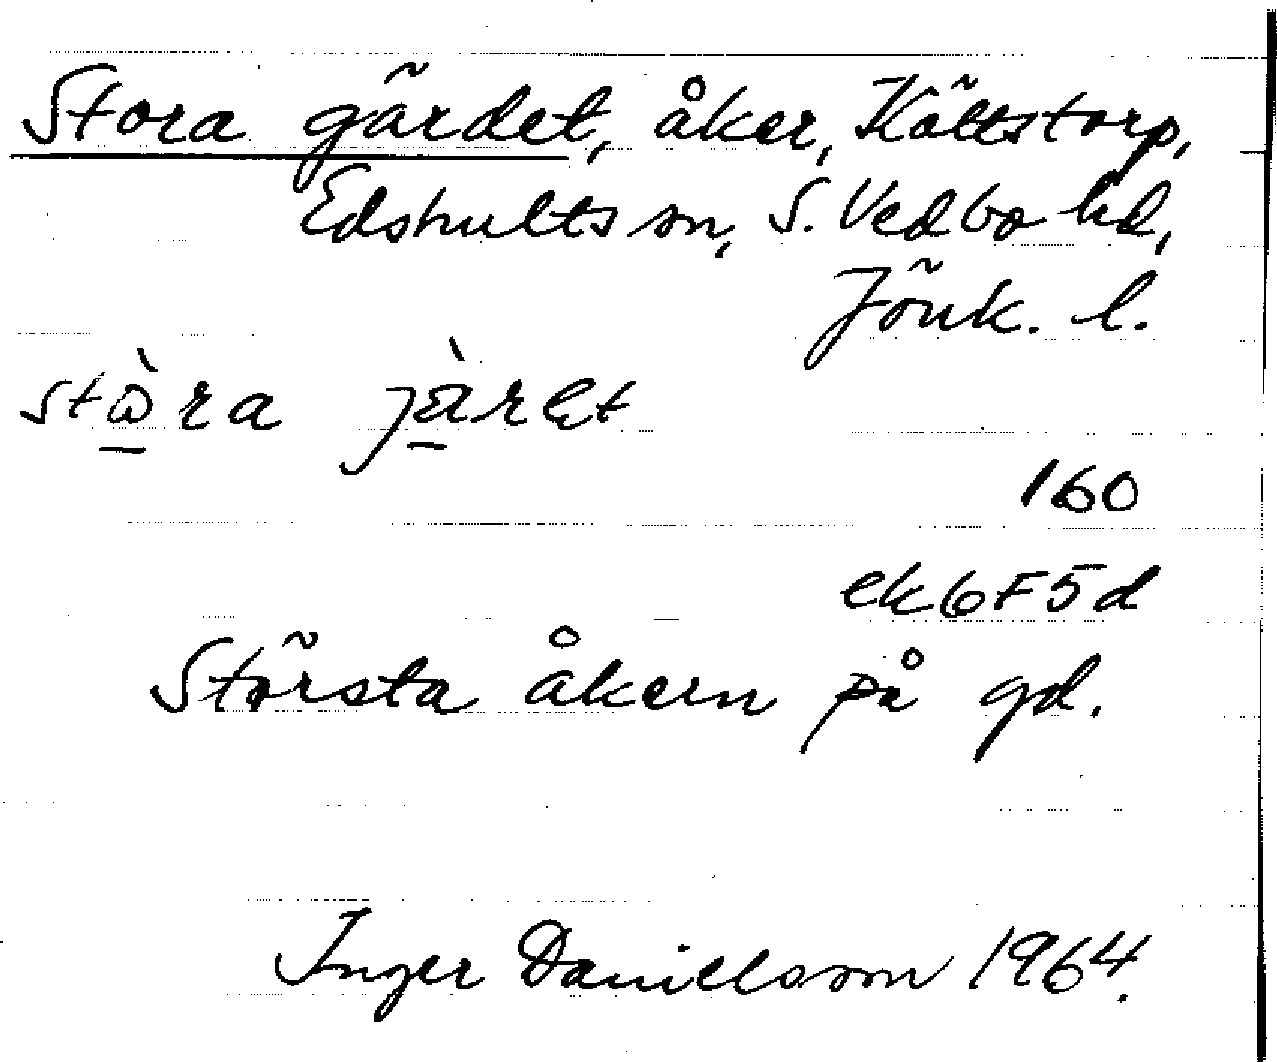 Stora gärdet, åker, Köttstorp,
Edshults sn, S. Vedbo hd,
Jönk. l.
stὼra jὰret
160
ek6F5d
Största åkern på gd.
Inger Danielsson 1964.